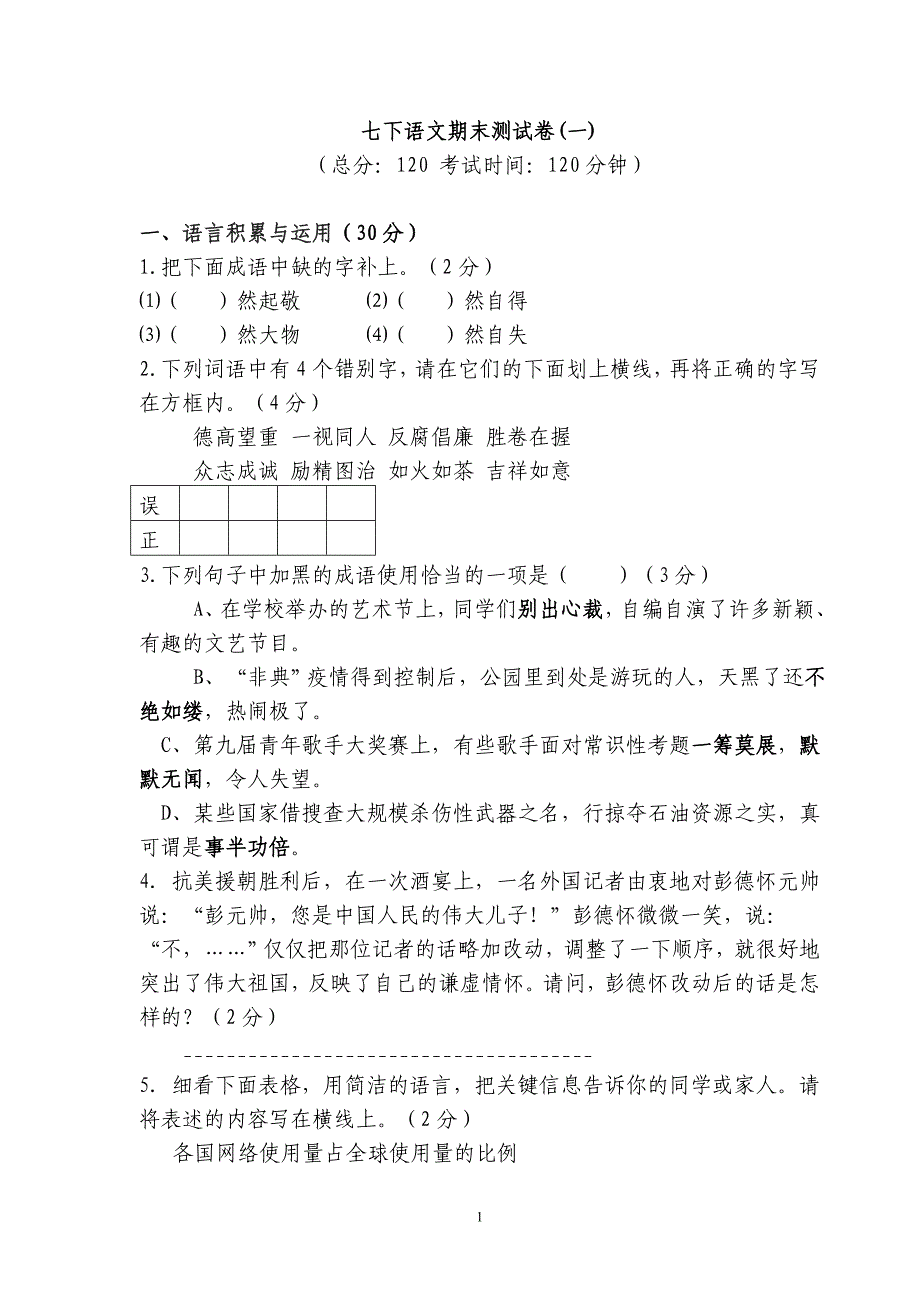 七下语文期末测试卷(一)
（总分：120 考试时间：120分钟）
一、语言积累与运用（30分）
1.把下面成语中缺的字补上。（2分）
⑴（ ）然起敬 ⑵（ ）然自得
⑶（ ）然大物 ⑷（ ）然自失
2.下列词语中有4个错别字，请在它们的下面划上横线，再将正确的字写
在方框内。（4分）
德高望重 一视同人 反腐倡廉 胜卷在握
众志成诚 励精图治 如火如茶 吉祥如意
误
正
3.下列句子中加黑的成语使用恰当的一项是（ ）（3分）
A、在学校举办的艺术节上，同学们别出心裁，自编自演了许多新颖、
有趣的文艺节目。
B、“非典”疫情得到控制后，公园里到处是游玩的人，天黑了还不
绝如缕，热闹极了。
C、第九届青年歌手大奖赛上，有些歌手面对常识性考题一筹莫展，默
默无闻，令人失望。
D、某些国家借搜查大规模杀伤性武器之名，行掠夺石油资源之实，真
可谓是事半功倍。
4. 抗美援朝胜利后，在一次酒宴上，一名外国记者由衷地对彭德怀元帅
说：“彭元帅，您是中国人民的伟大儿子！”彭德怀微微一笑，说：
“不，……”仅仅把那位记者的话略加改动，调整了一下顺序，就很好地
突出了伟大祖国，反映了自己的谦虚情怀。请问，彭德怀改动后的话是怎
样的？（2分）
--------------------------------------
5. 细看下面表格，用简洁的语言，把关键信息告诉你的同学或家人。请
将表述的内容写在横线上。（2分）
各国网络使用量占全球使用量的比例
1